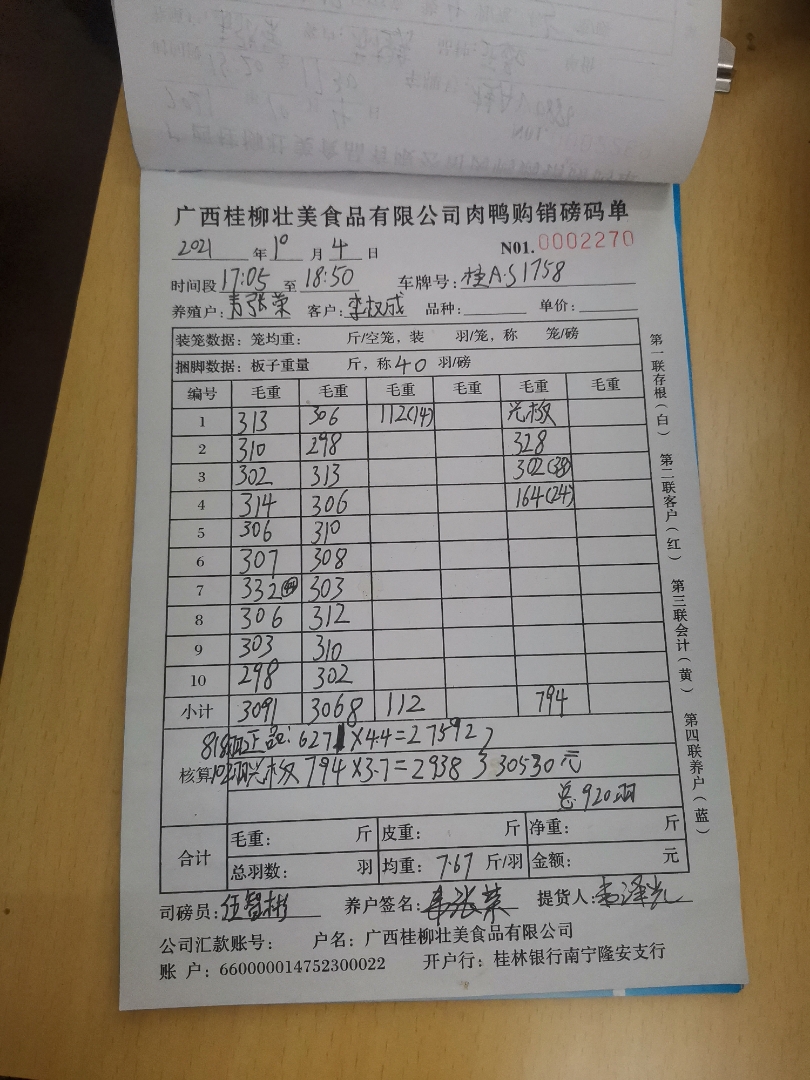 广西桂柳壮美食品有限公司肉鸭购销磅码单
2021 年 10 月 4 日 N01. 0002270
时间段 17:05 至 18:50 车牌号: 桂A·S1758
养殖户: 韦张荣 客户: 李权成 品种: 单价:
装笼数据: 笼均重: 斤/空笼, 装 羽/笼, 称 笼/磅
捆脚数据: 板子重量 斤, 称 40 羽/磅
编号 毛重 毛重 毛重 毛重 毛重 毛重
1 313 306 112(14) 光板
2 310 298 328
3 302 313 302(38)
4 314 306 164(24)
5 306 310
6 307 308
7 332 303
8 306 312
9 303 310
10 298 302
小计 3091 3068 112 794
818羽正品: 6271×4.4=27592
核算 102羽光板 794×3.7=2938 30530元
总920羽
合计 毛重: 斤 皮重: 斤 净重: 斤
总羽数: 羽 均重: 7.67 斤/羽 金额: 元
司磅员: 伍智彬 养户签名: 韦张荣 提货人:
公司汇款账号: 户名: 广西桂柳壮美食品有限公司
账 户: 660000014752300022 开户行: 桂林银行南宁隆安支行
第一联存根(白) 第二联客户(红) 第三联会计(黄) 第四联养户(蓝)